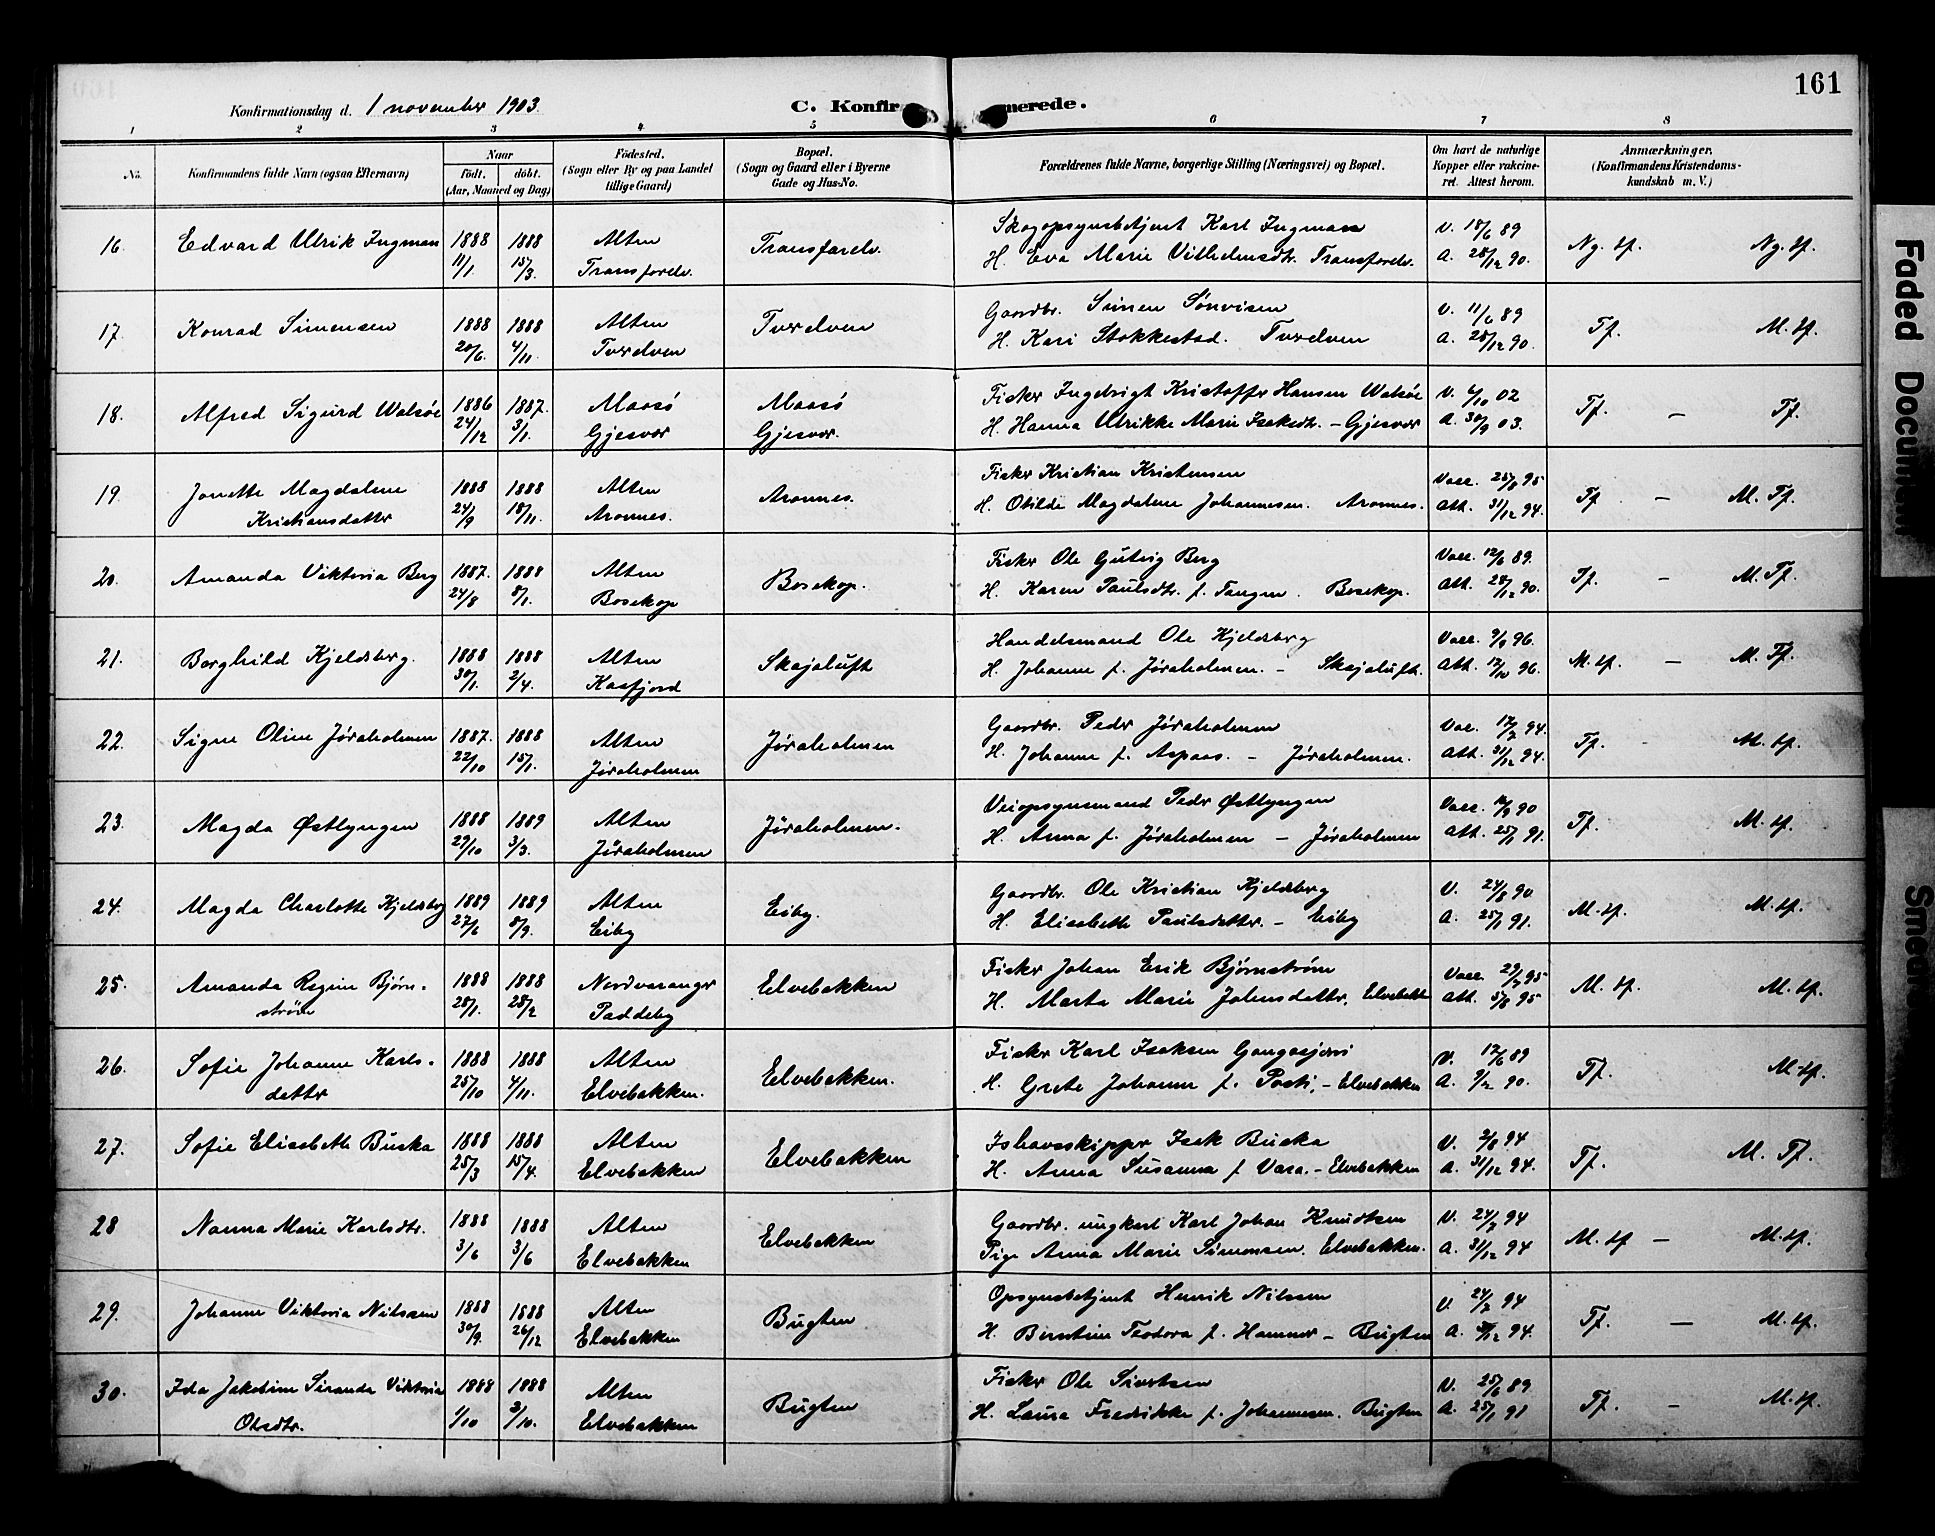 161
Konfirmationsdag d. 1 november 1903.
C. Konfirmerede.
1 2 3 4 5 6 7 8
No.
Konfirmandens fulde Navn (ogsaa Efternavn)
Naar
født. døbt.
(Aar, Maaned og Dag)
Fødested.
(Sogn eller By og paa Landet
tillige Gaard)
Bopæl.
(Sogn og Gaard eller i Byerne
Gade og Hus-No.
Forældrenes fulde Navne, borgerlige Stilling (Næringsvei) og Bopæl.
Om havt de naturlige
Kopper eller vakcine-
ret. Attest herom.
Anmærkninger.
(Konfirmandens Kristendoms-
kundskab m. V.)
16. Edvard Ulrik Ingman 1888 11/1. 1888 15/3. Alten Transfarelv. Transfarelv. Skogopsynsbetjent Karl Ingman
H. Eva Marie Vilhelmsdtr. Transfarelv. V. 18/6 89 A. 28/12 90. Ng. tf. Ng. tf.
17. Konrad Simensen 1888 20/6. 1888 4/11. Alten Tverelven Tverelven Gaardbr. Simen Sønvisen
H. Kari Stokkestad. Tverelven V. 11/6 89 A. 28/12 90. Tf. M. tf.
18. Alfred Sigurd Walsøe 1886 24/12 1887. 3/1. Maasø Gjesvær Maasø Gjesvær. Fisker Ingebrigt Kristoffer Hansen Walsøe
H. Hanna Ulrikke Marie Isaksdtr. - Gjesvær V. 6/10 02 A. 30/9 03. Tf. - Tf.
19. Jonette Magdalene
Kristiansdatter 1888 24/9 1888 18/11. Alten Aronnes. Aronnes. Fisker Kristian Kristensen
H. Otilde Magdalene Johannesen. Aronnes. Vacc. 25/8 95 Att. 31/12 94. Tf. - M. Tf.
20. Amanda Viktoria Berg 1887. 24/8 1888 8/1. Alten Bosekop Bosekop. Fisker Ole Gutrig Berg
H. Karen Paulsdtr. f. Tangen. Bosekop. Vacc. 12/6 89. Att. 28/12 90. Tf. - M. Tf.
21. Borghild Kjeldsberg. 1888 30/1. 1888 2/4. Alten Kaafjord Skajaluft Handelsmand Ole Kjeldsberg
H. Johanne f. Jøraholmen. - Skajaluft. Vacc. 9/9 96. Att. 12/10 96. M. tf. - M. Tf.
22. Signe Oline Jøraholmen 1887. 22/10 1888 15/1. Alten Jøraholmen Jøraholmen Gaardbr. Peder Jøraholmen
H. Johanne f. Aspaas. - Jøraholmen. Vac. 17/7 94. Att. 31/12 94. Tf. - M. tf.
23. Magda Østlyngen 1888 29/10 1889 3/3. Alten Jøraholmen Jøraholmen. Veiopsynsmand Peder Østlyngen
H. Anna f. Jøraholmen - Jøraholmen Vacc. 12/9 90 Att. 25/1 91. Tf. M. tf.
24. Magda Charlotte Kjeldsberg 1889 27/6 1889 8/9. Alten Eiby Eiby. Gaardbr. Ole Kristian Kjeldsberg
H. Elisabeth Paulsdatter. - Eiby V. 24/8 90 A. 25/1 91. M. tf. M. tf.
25. Amanda Regine Bjørn-
strøm 1888 28/1. 1888 28/2 Nordvaranger Paddeby Elvebakken Fisker Johan Erik Bjørnstrøm
H. Marta Marie Johnsdatter. Elvebakken Vacc. 29/7 95 Att. 5/8 95 M. tf. M. tf.
26. Sofie Johanne Karls-
datter 1888 25/10 1888 4/11. Alten Elvebakken. Elvebakken. Fisker Karl Isaksen Gangasjærvi
H. Grete Johanne f. Posti. - Elvebakken V. 12/6 89 A. 9/2 90. Tf. M. tf.
27. Sofie Elisabeth Buska 1888 25/3 1888 15/4. Alten Elvebakken Elvebakken Ishavsskipper Isak Buska
H. Anna Susanna f Vara. - Elvebakken V. 2/8 94 A. 31/12 94. Tf. M. Tf.
28 Nanna Marie Karlsdtr. 1888 3/6 1888 3/6 Alten Elvebakken Elvebakken Gaardbr. ungkarl Karl Johan Knudtsen
Pige Anna Marie Simonsen. Elvebakken. V. 24/7 94 A. 31/12 94 M. tf - M. tf.
29. Johanne Viktoria Nilssen 1888 30/9. 1888 26/12 Alten Elvebakken Bugten Opsynsbetjent Henrik Nilsen
H. Birntine Teodora f. Hammer - Bugten V. 24/7 94 A. 31/12 94. Tf. - M. tf.
30. Ida Jakobine Siranda Viktoria
Olsdtr. 1888 1/10 1888 3/10. Alten Elvebakken Bugten Fisker Ole Sivertsen
H. Laura Fredrikke f. Johannesen. Bugten V. 25/6 89 A. 25/1 91 Tf. - M. tf.
Faded Document
Smeared